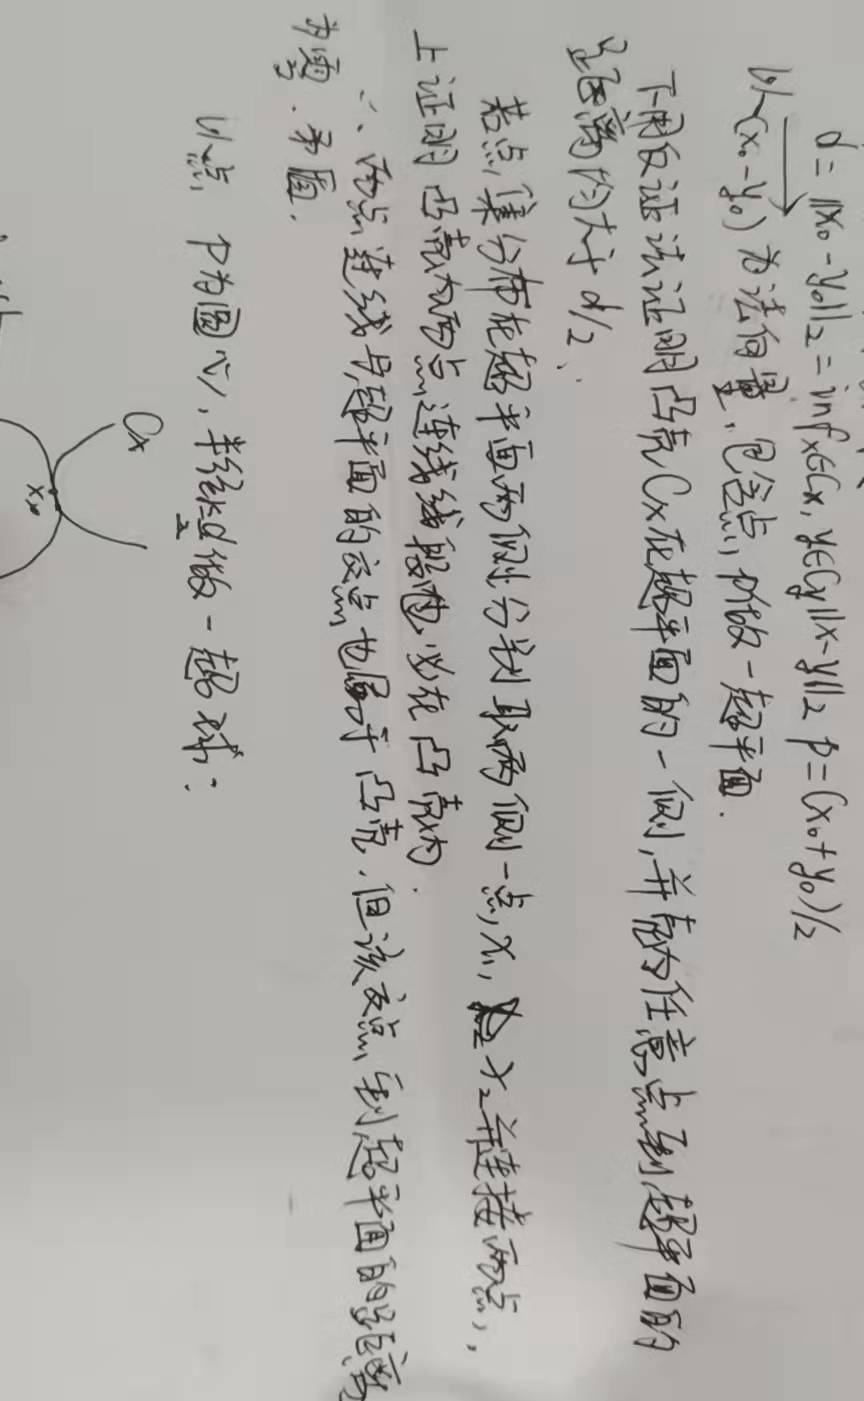 d = ||x₀ - y₀||₂ = inf x∈Cx, y∈Cy ||x-y||₂ p = (x₀+y₀)/2
以(x₀-y₀)为法向量,包含点p做一超平面.
下用反证法证明凸壳Cx在超平面的一侧,并壳内任意点到超平面的
距离均大于d/2、
若点集分布在超平面两侧,分别取两侧一点x₁, x₂并连接两点,
上证明凸壳内两点连线线段也必在凸壳内.
∴两点连线与超平面的交点也属于凸壳.但该交点到超平面的距离
为零.矛盾.
以点p为圆心,半径d/2做一超球:
Cx